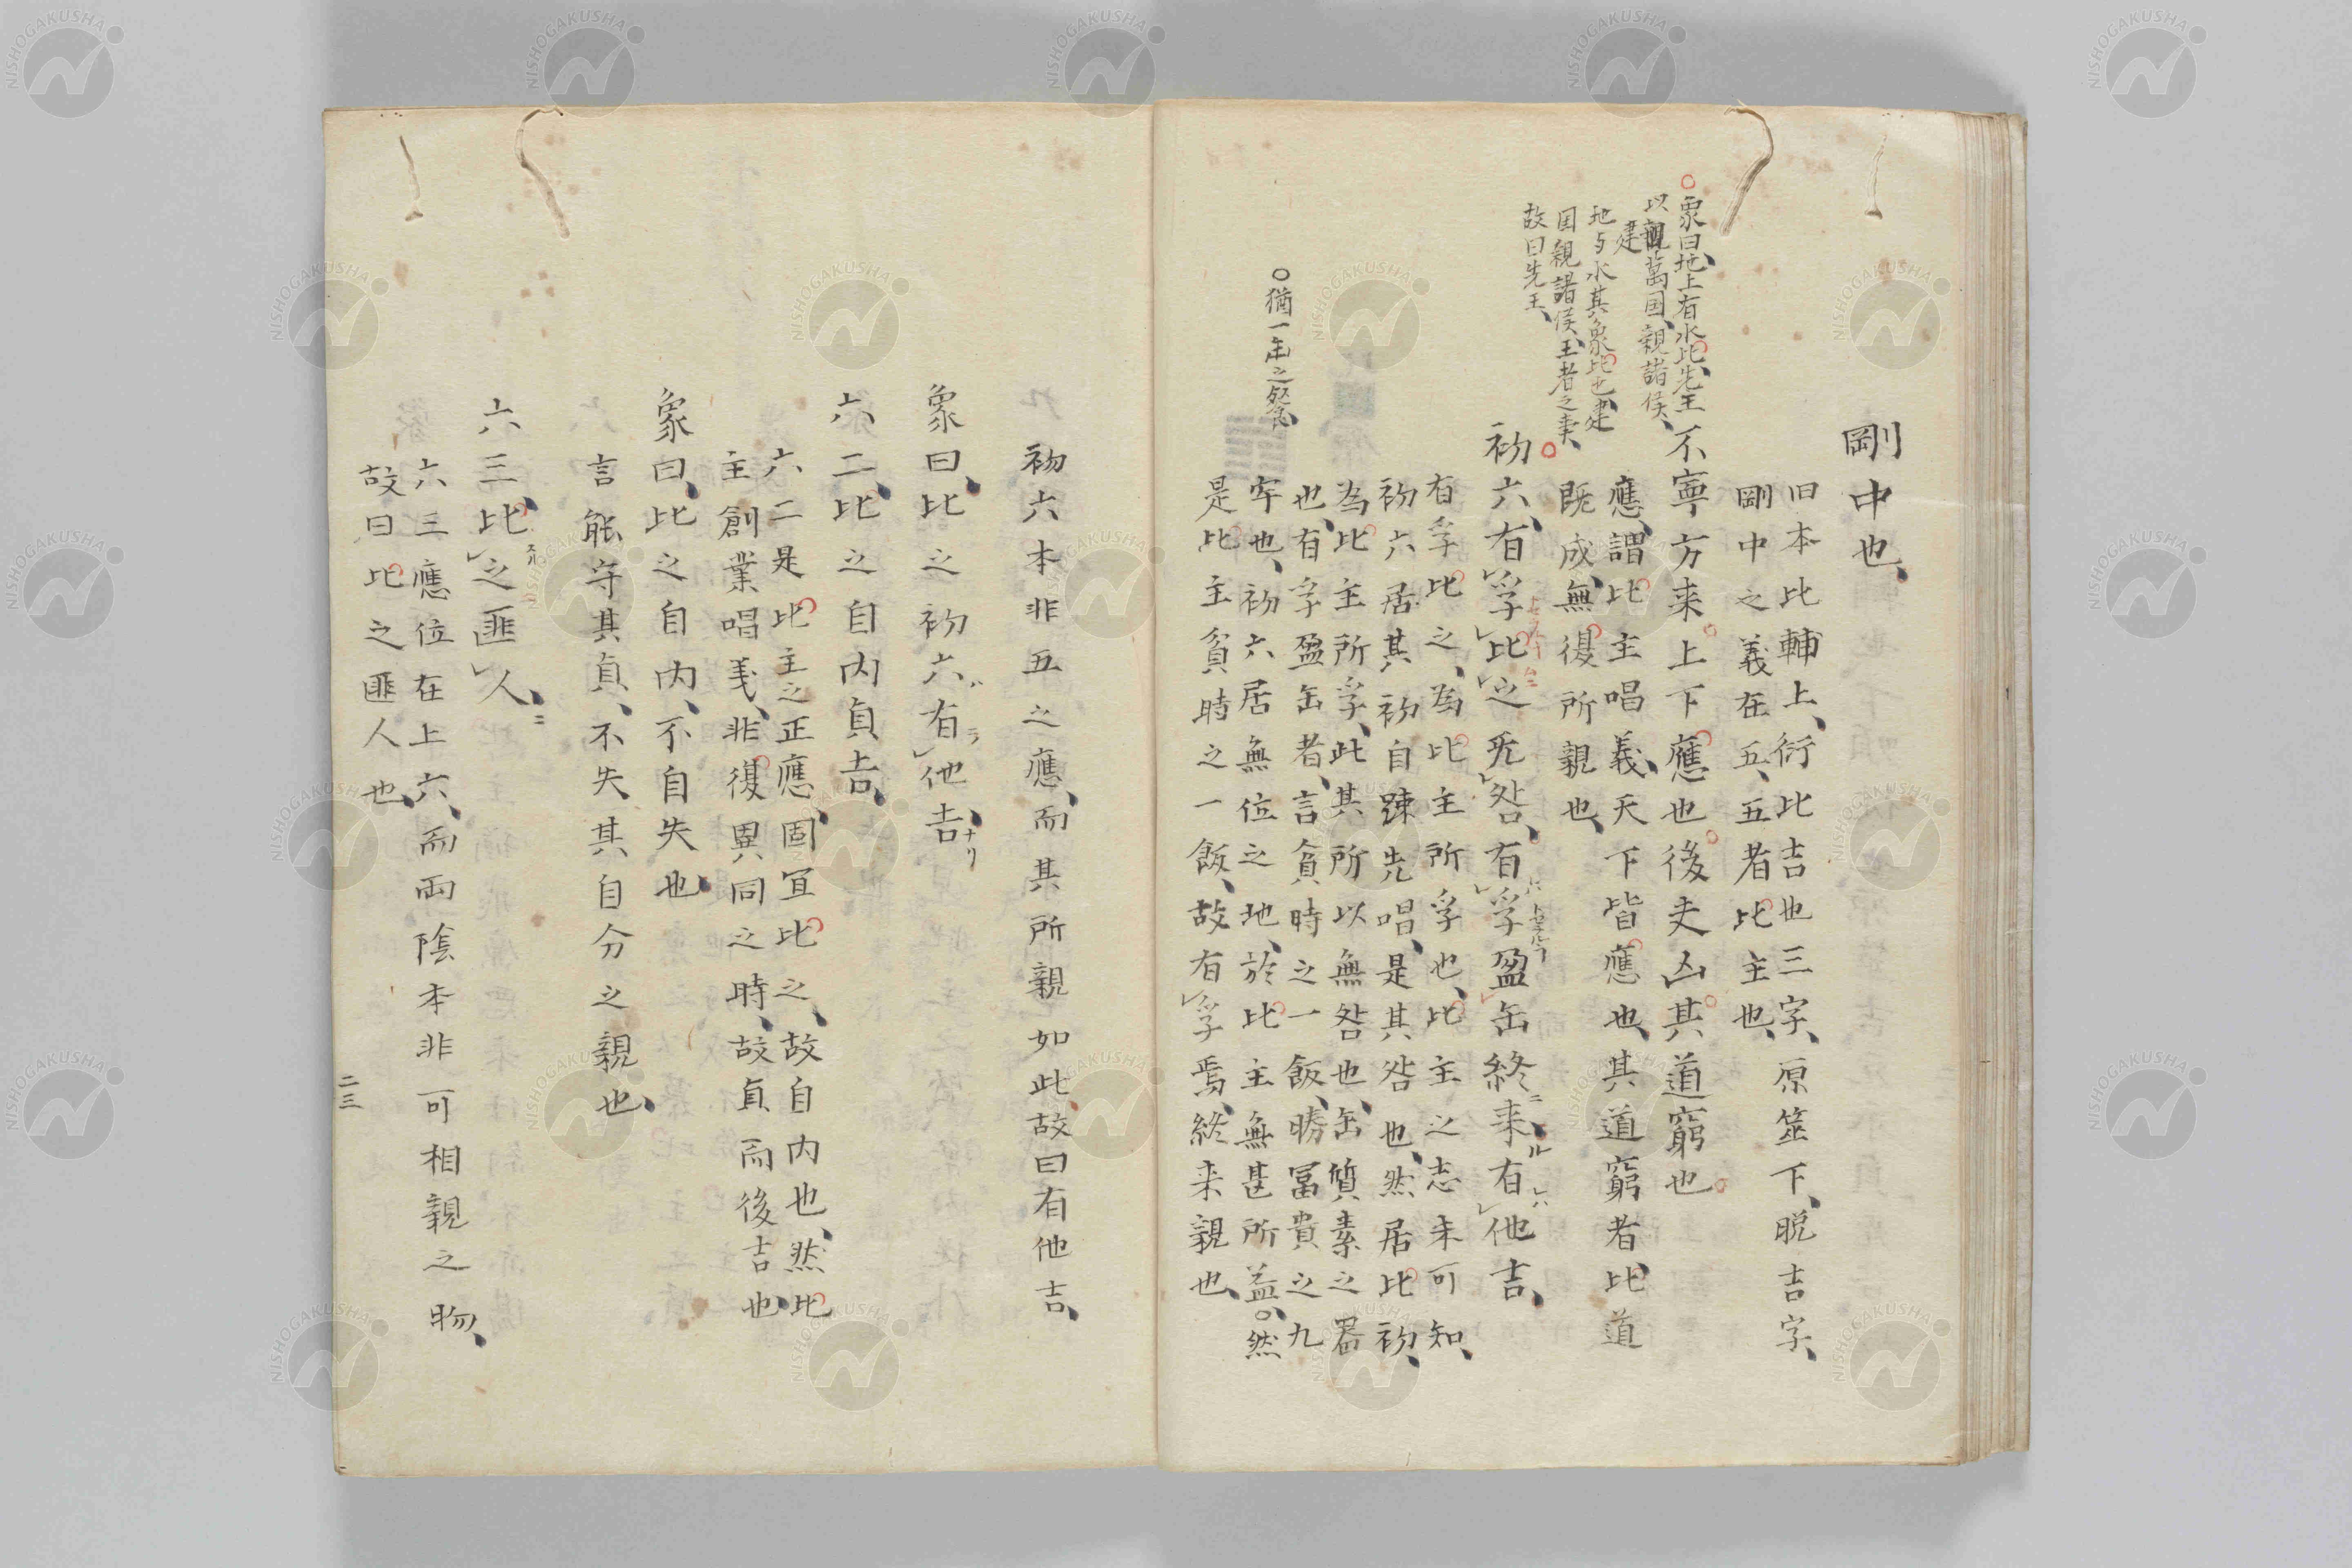 剛中也、
旧本比輔上、衍比吉也三字、原筮下、脱吉字、
剛中之義在五、五者比主也、
不寧方来上下應也後夫凶其道窮也
應、謂比主唱義、天下皆應也、其道窮者比道
既成、無復所親也、
○象曰、地上有水比、先王
以建萬国、親諸侯、
地与水其象比也、建
国親諸侯、王者之事、
故曰先王、
初六、有孚比之无咎、有孚盈缶終来有他吉、
有孚比之、為比主所孚也、比主之志未可知、
初六居其初自踈先唱、是其咎也、然居比初、
為比主所孚、此其所以無咎也、缶、質素之器
也、有孚盈缶者、言貧時之一飯、勝冨貴之九
牢也、初六居無位之地、於比主無甚所益、○然
是比主貧時之一飯、故有孚焉、終来親也、
○猶一缶之餐、
初六本非五之應、而其所親如此故曰有他吉、
象曰、比之初六有他吉、
六二、比之自内貞吉、
六二是比主之正應、固宜比之、故自内也、然比
主創業唱義、非復異同之時、故貞而後吉也
象曰、比之自内、不自失也、
言能守其貞、不失其自分之親也、
六三、比之匪人、
六三應位在上六、而両陰本非可相親之物、
故曰比之匪人也
二三
NISHOGAKUSHA